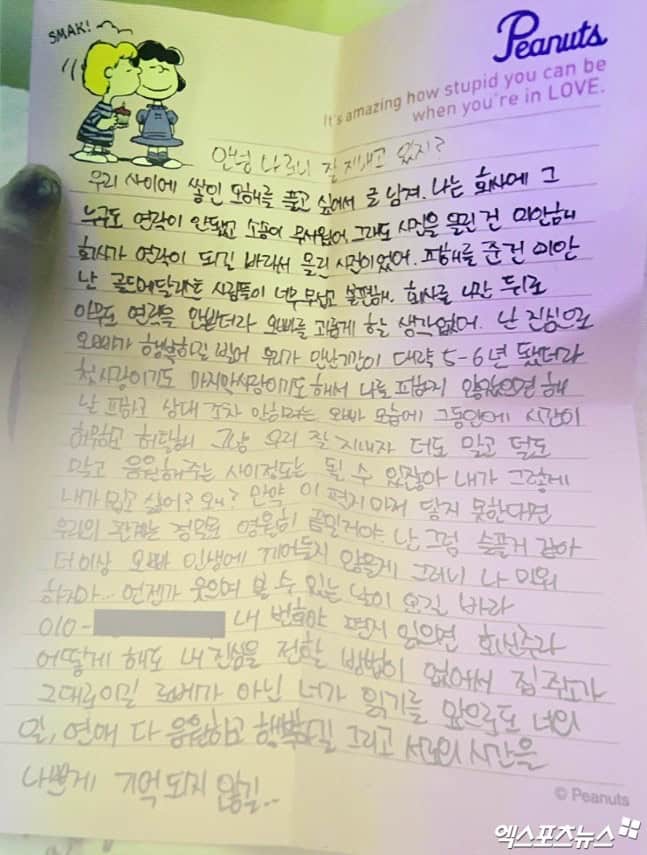 SMAK!
Peanuts
It's amazing how stupid you can be
when you're in LOVE.
안녕 나 론이 잘 지내고 있지?
우리 사이에 쌓인 오해를 풀고 싶어서 글 남겨. 나는 회사에 그
누구도 연락이 안됐고 소송이 무서웠어. 그래도 사진을 올린 건 미안해
회사가 연락이 되길 바라서 올린 사진이었어. 피해를 준건 미안
난 골드메달리스트 사람들이 너무 무섭고 불편해. 회사를 나간 뒤로
아무도 연락을 안받더라 오빠를 괴롭게 할 생각없어. 난 진심으로
오빠가 행복하길 빌어 우리가 만난기간이 대략 5-6년 됐더라
첫사랑이기도 마지막사랑이기도 해서 나를 피하지 않았으면 해
날 피하고 상대조차 안하려는 오빠 모습에 그동안에 시간이
허무하고 허탈해 그냥 우리 잘 지내자 더도 말고 덜도
말고 응원해주는 사이정도는 될 수 있잖아 내가 그렇게
내가 밉고 싫어? 왜? 만약 이 편지마저 닿지 못한다면
우리의 관계는 정말로 영원히 끝일거야. 난 그럼 슬플거 같아
더이상 오빠 인생에 끼어들지 않을게 그러니 나 미워
하지마.. 언젠가 웃으며 볼 수 있는 날이 오길 바라
010- 내 번호야 편지 읽으면 회신주라
어떻게 해도 내 진심을 전할 방법이 없어서 집주소가
그대로이길 로베가 아닌 너가 읽기를 앞으로도 너의
일, 연애 다 응원하고 행복하길 그리고 서로의 시간을
나쁘게 기억되지 않길..
© Peanuts
엑스포츠뉴스